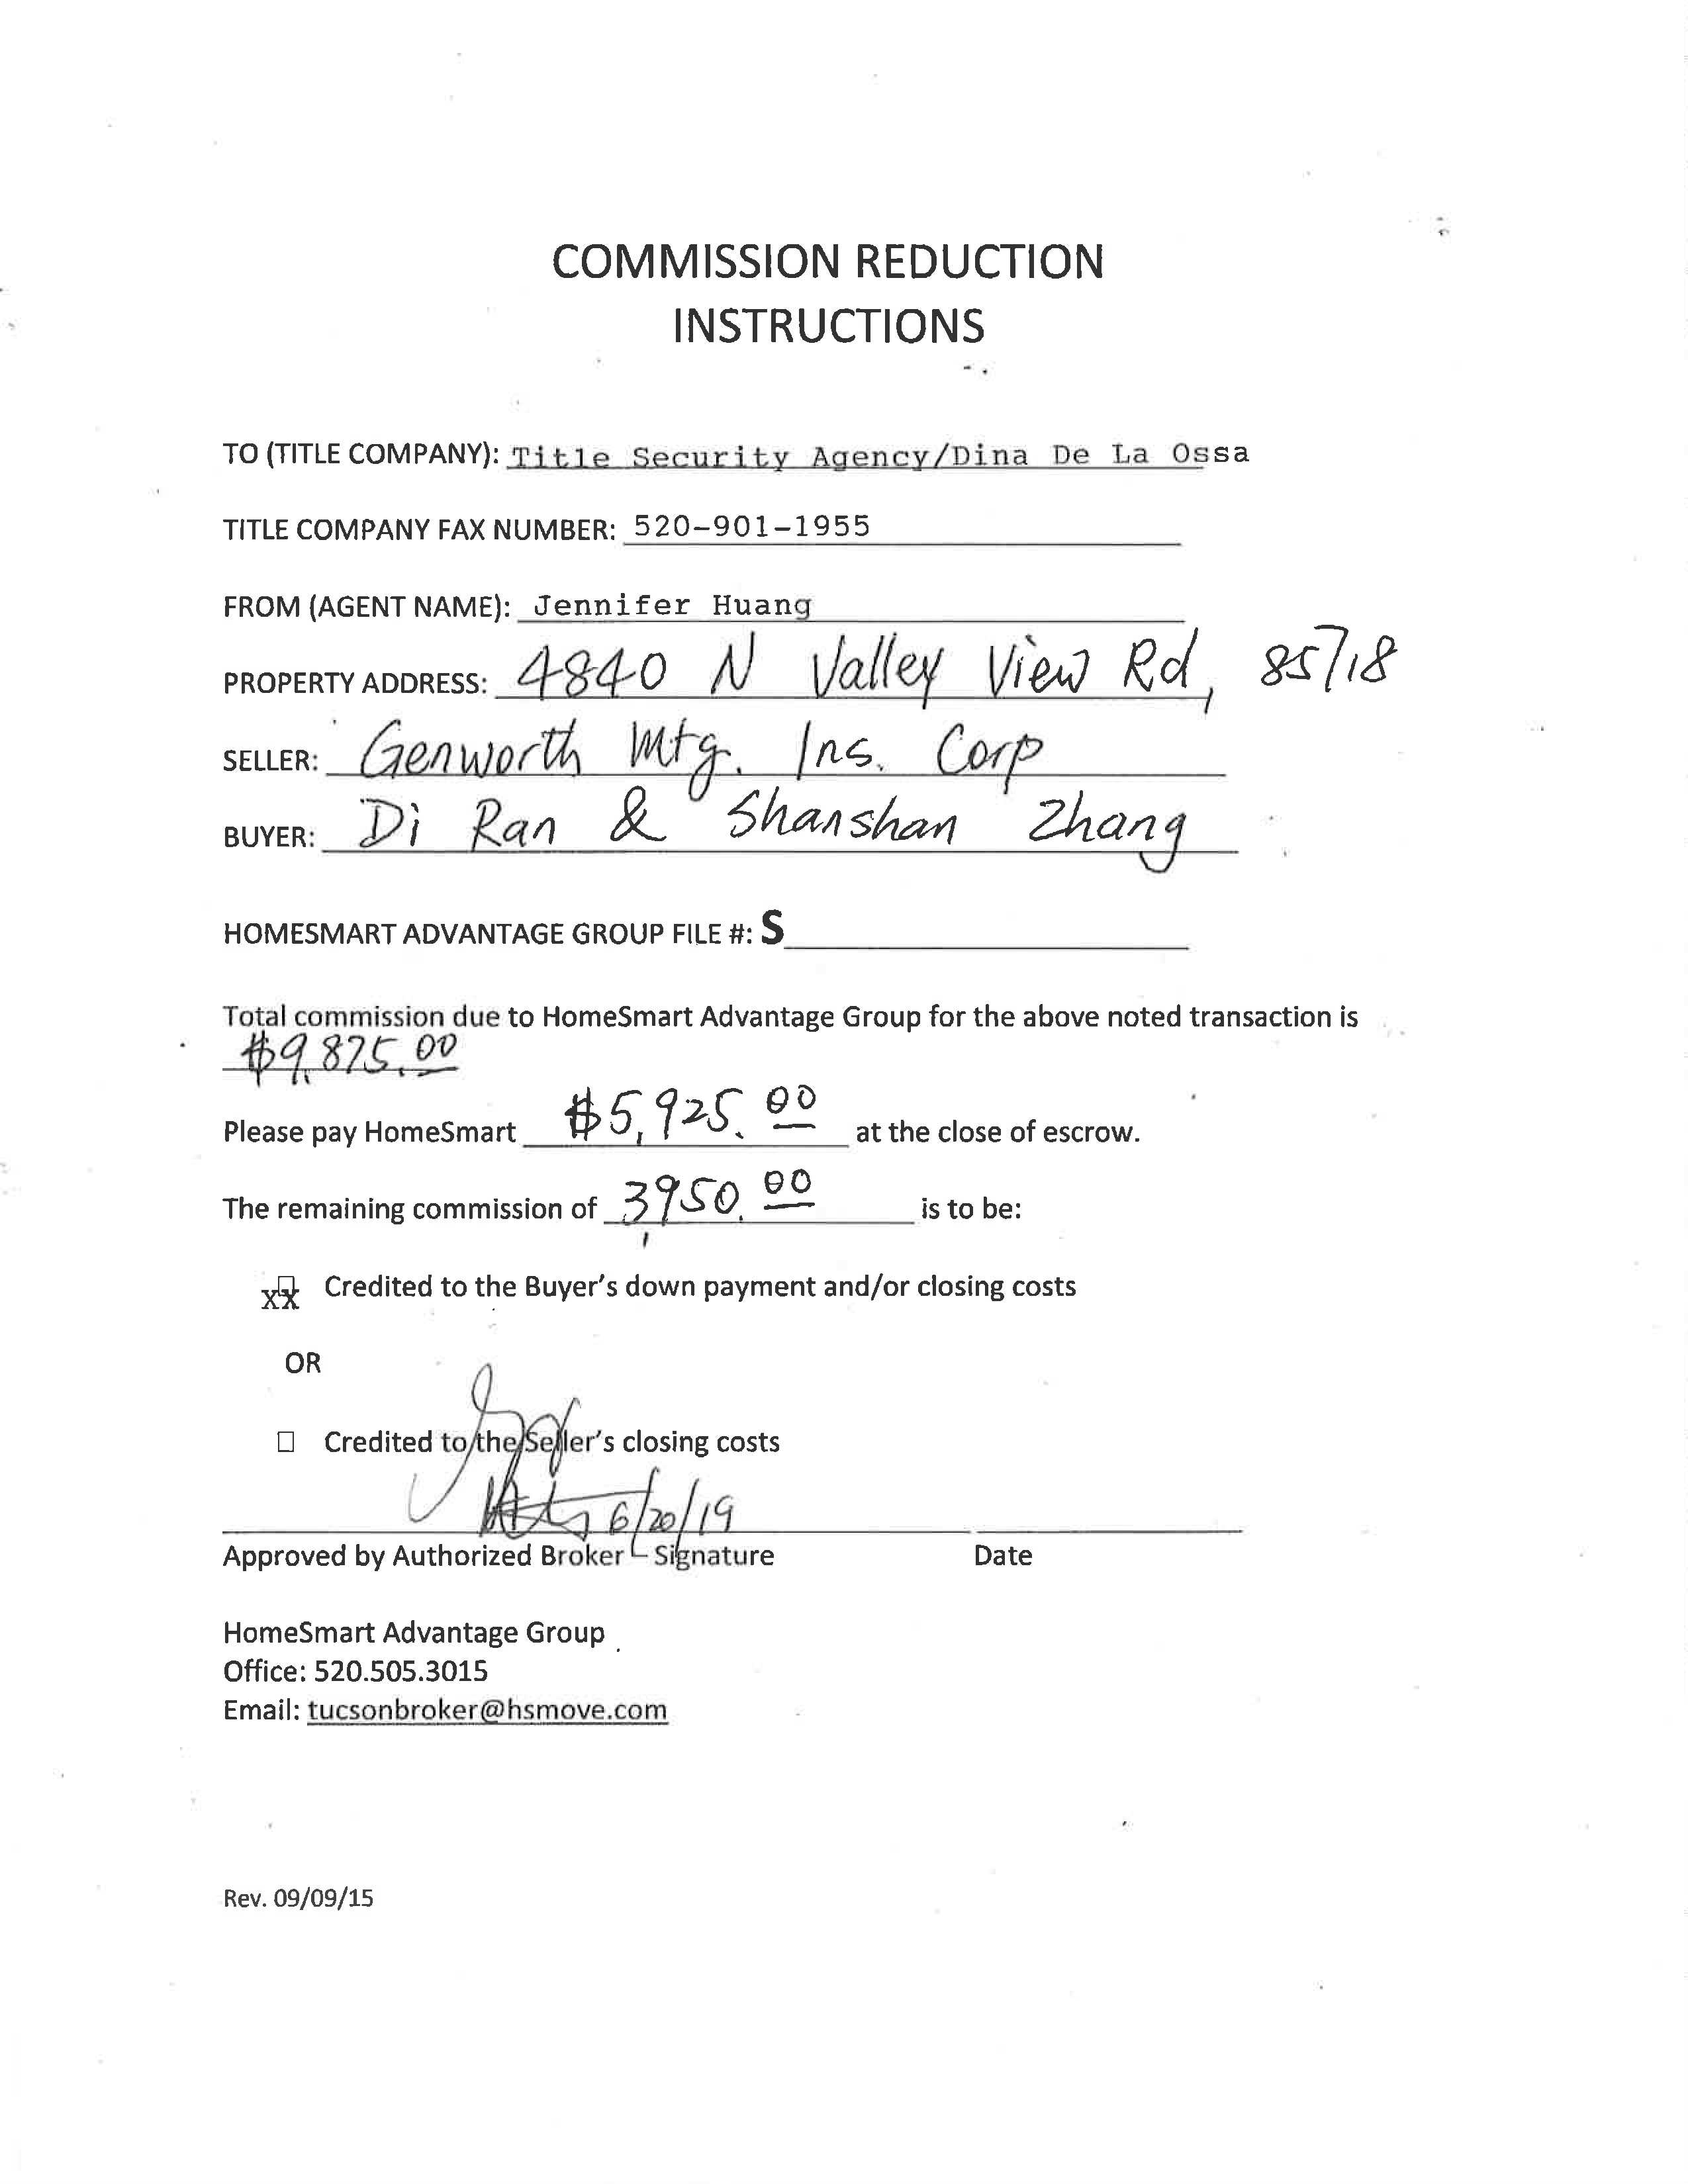 COMMISSION REDUCTION
INSTRUCTIONS
TO (TITLE COMPANY): Title Security Agency/Dina De La Ossa
TITLE COMPANY FAX NUMBER: 520-901-1955
FROM (AGENT NAME): Jennifer Huang
PROPERTY ADDRESS: 4840 N Valley View Rd, 85718
SELLER: Genworth Mtg. Ins. Corp
BUYER: Di Ran & Shanshan Zhang
HOMESMART ADVANTAGE GROUP FILE #: S
Total commission due to HomeSmart Advantage Group for the above noted transaction is
$9,875.00
Please pay HomeSmart $5,925.00 at the close of escrow.
The remaining commission of 3,950.00 is to be:
xx Credited to the Buyer's down payment and/or closing costs
OR
☐ Credited to the Seller's closing costs
6/20/19
Approved by Authorized Broker – Signature Date
HomeSmart Advantage Group
Office: 520.505.3015
Email: tucsonbroker@hsmove.com
Rev. 09/09/15